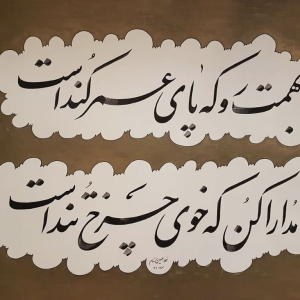 بهمت رو که پای عمر کند است
مدارا کن که خوی چرخ تند است